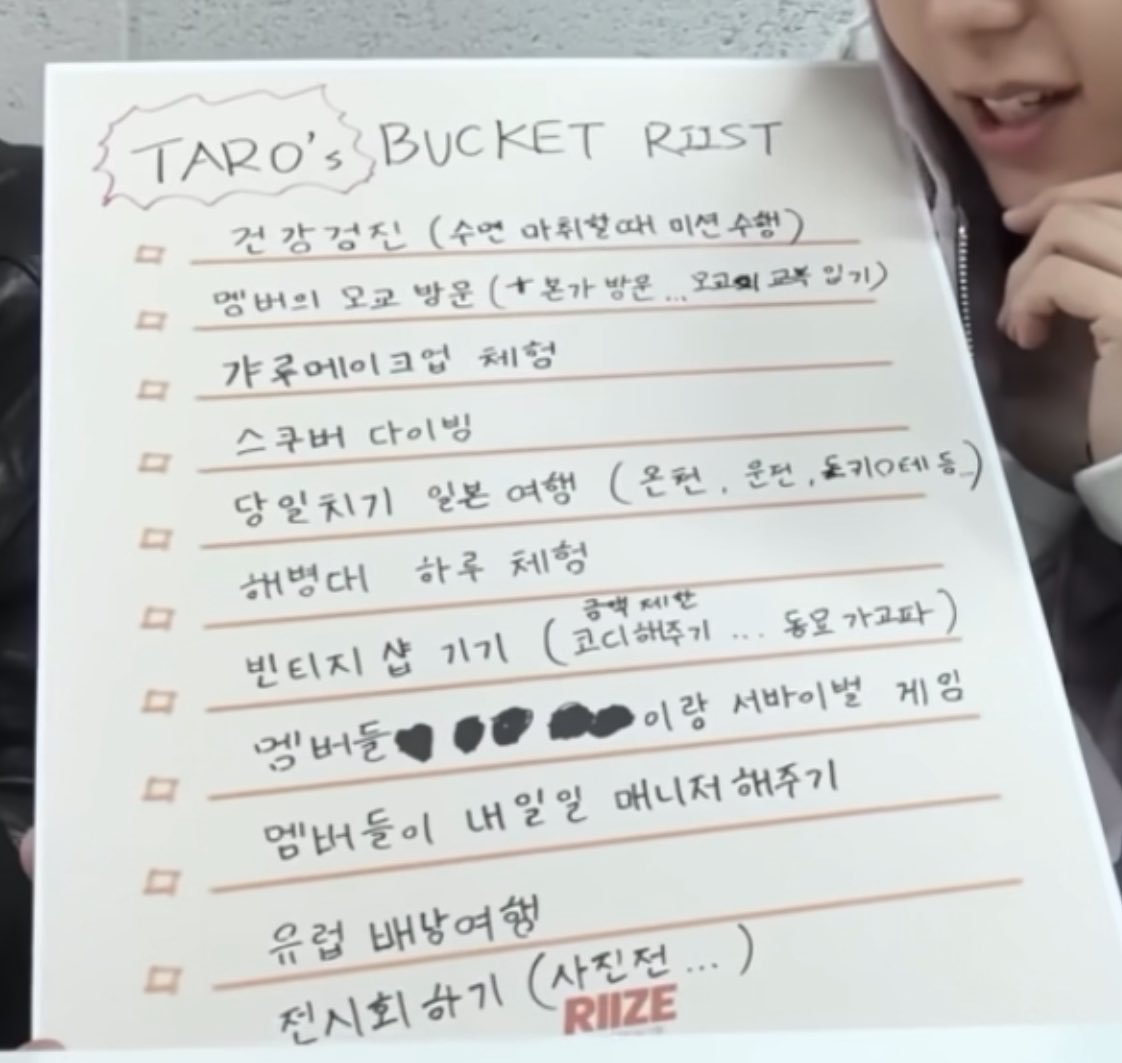 TARO's BUCKET RIIST
건강검진 (수면 마취할때 미션 수행)
멤버의 모교 방문 (+ 본가 방문 ... 모교의 교복 입기)
갸루메이크업 체험
스쿠버 다이빙
당일치기 일본 여행 (온천, 운전, 도키아테 등..)
해병대 하루 체험
금액 제한
빈티지 샵 가기 (코디해주기 ... 동묘 가고파)
멤버들 이랑 서바이벌 게임
멤버들이 내 일일 매니저 해주기
유럽 배낭여행
전시회 하기 (사진전 ... )
RIIZE